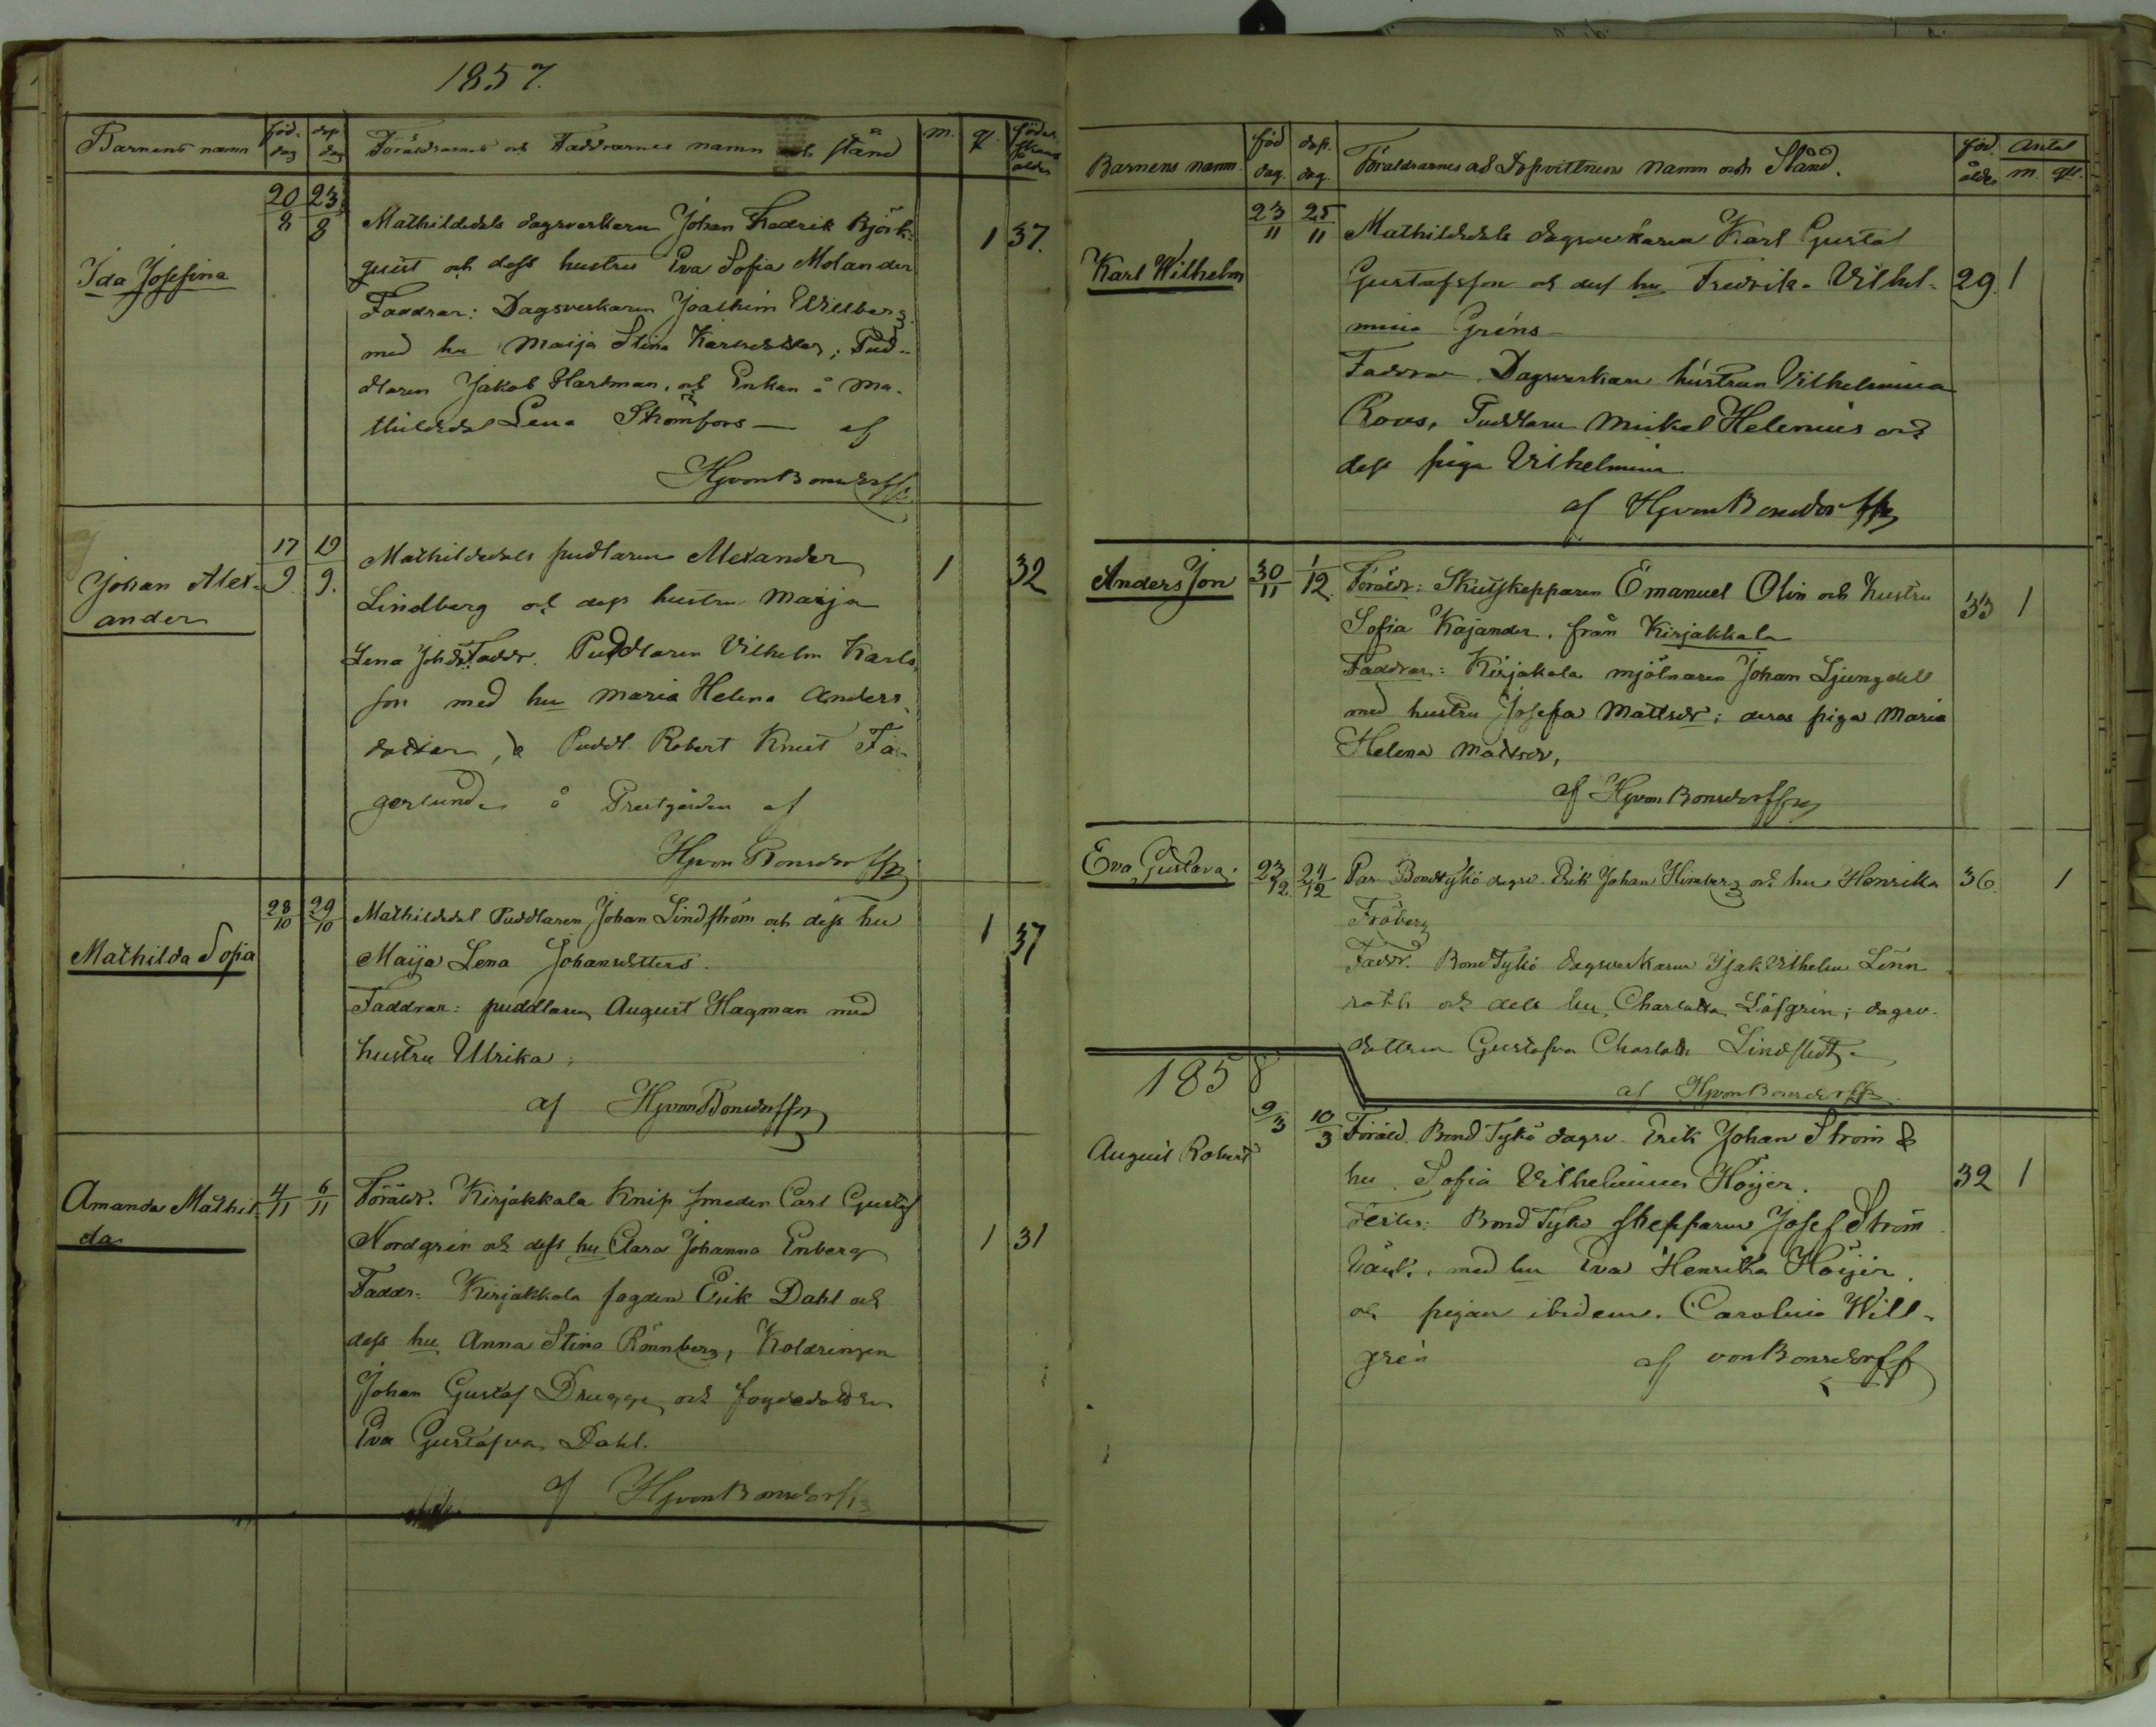 1857.
Barnens namn född. dag dop dag Föräldrarnes och Faddrarnes namn och stånd m. q. föder skans ålder
20/8 23/8 Mathildedals dagsverkaren Johan Fredrik Björk-
Ida Josefina quist och dess hustru Eva Sofia Molander 1 37.
Faddrar: Dagsverkaren Joachim Willberg
med hu Maija Stina Karlsdotter; Pud-
dlaren Jakob Hartman, och Enkan å Ma-
thildedal Lena Strömfors — af
HjvonBonsdorff
17/9 19/9. Mathildedals pudlaren Alexander 1 32
Johan Alex-
ander
Lindberg och dess hustru Maija
Lena Johdr. Faddr. Puddlaren Vilhelm Karls-
son med hu Maria Helena Anders-
dotter, & Puddl. Robert Knut Fa-
gerlund å Prestgården af
HjvonBonsdorff
28/10 29/10 Mathildedal Puddlaren Johan Lindström och dess hu 1 37
Mathilda Sofia Maija Lena Johansdotters.
Faddrar: puddlaren August Hagman med
hustru Ulrika;
af HjvonBonsdorff
Amanda Mathil- 4/11 6/11 Föräldr. Kirjakkala Knip smeden Carl Gustaf
da Nordgren och dess hu Clara Johanna Enberg 1 31
Faddr: Kirjakkala fogden Erik Dahl och
dess hu Anna Stina Rönnberg, Koldrengen
Johan Gustaf Drugge och fogdedottren
Eva Gustafva Dahl.
af HjvonBonsdorff
Barnens namn föd dag. dop. dag. Föräldrarnes och Dopvittnens Namn och Stånd. föd. ålder Antal m. qk.
23/11 25/11 Mathildedals dagsverkaren Karl Gustaf
Karl Wilhelm Gustafsson och dess hu Fredrika Vilhel- 29. 1
mina Gréns
Faddrar Dagsverkare hustrun Vilhelmina
Roos, Puddlaren Mikel Helenius och
dess piga Vilhelmina
af HjvonBonsdorff
Anders Jon 30/11 1/12. Föräldr: Skutskepparen Emanuel Olin och hustru 33 1
Sofia Kajander, från Kirjakkala
Faddrar: Kirjakala mjölnaren Johan Ljungdell
med hustru Josefa Mattsdr; deras piga Maria
Helena Mattsdr,
af HjvonBonsdorff
Eva Gustava. 23/12 24/12 Par Bondtykö dagsv. Erik Johan Himberg och hu Henrika 36. 1
Fröberg
Faddr. Bond Tykö dagsverkaren Isak Vilhelm Lönn
roth och dess hu, Charlotta Löfgren; dagsv.
dottren Gustafva Charlotta Lindstedt.
af HjvonBonsdorff
1858
9/3 10/3 Föräld. Bond Tykö dagsv. Erik Johan Ström &
August Robert hu. Sofia Vilhelmina Höijer. 32 1
Testes: Bond Tyko skepparen Josef Ström
bäck, med hu Eva Henrika Höijer.
och pigan ibidem. Carolina Will-
grén af vonBonsdorff